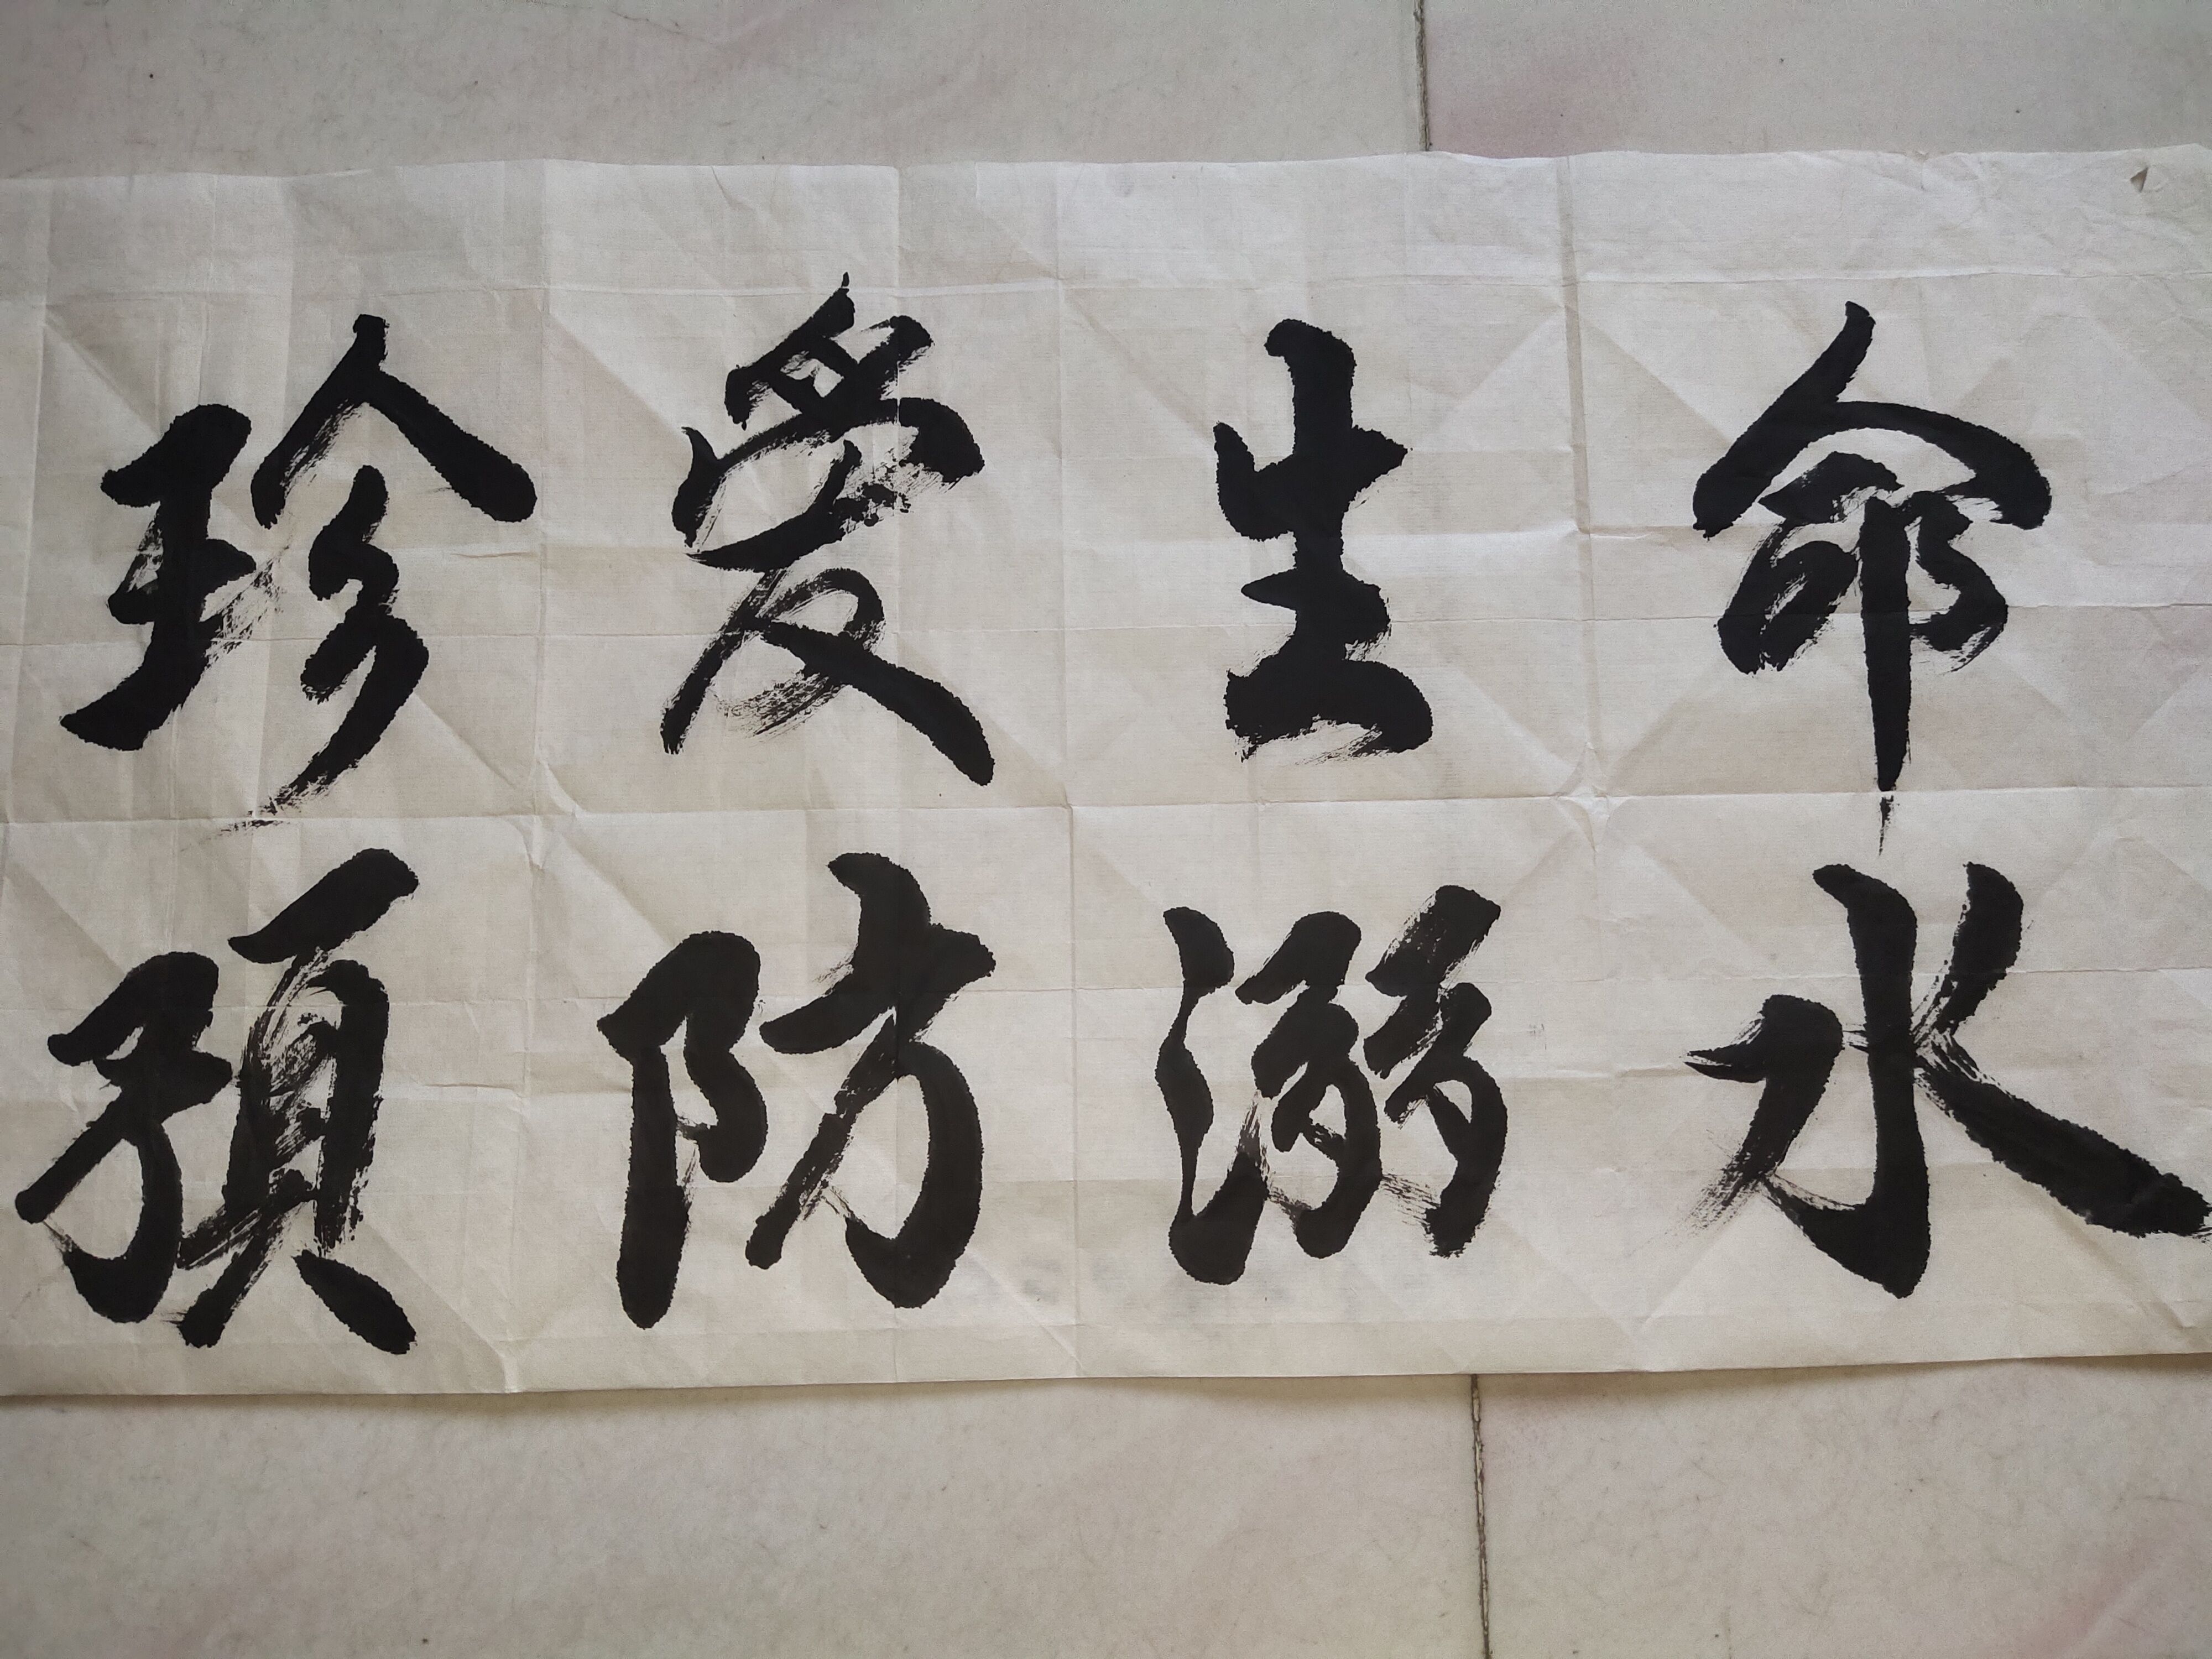 珍爱生命
預防溺水